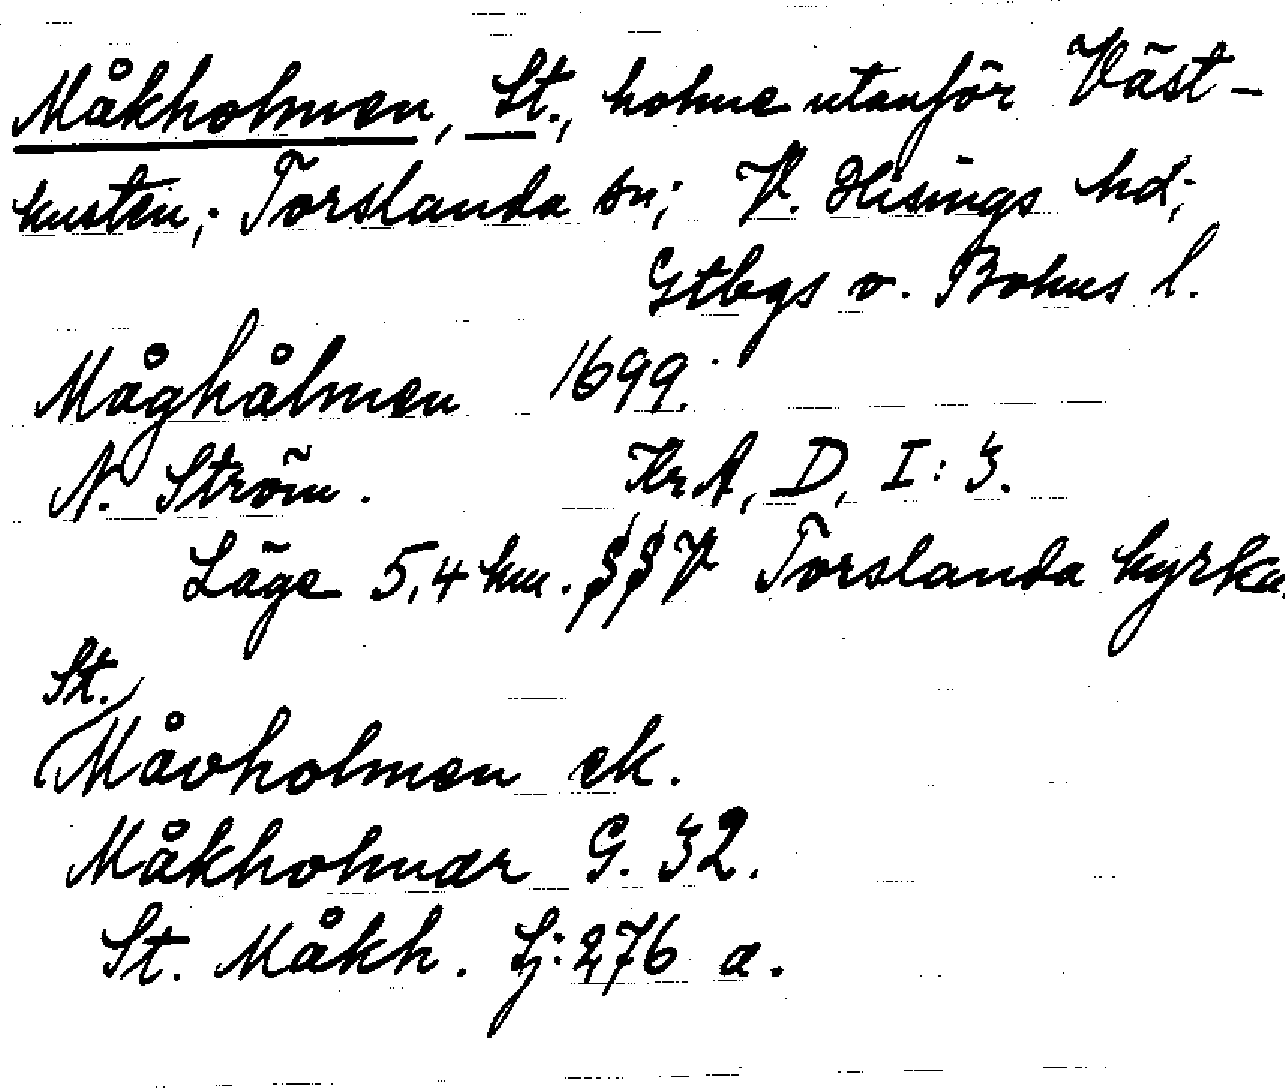 Måkholmen, St., holme utanför Väst-
kusten; Torslanda sn; V. Hisings hd;
Gtbgs o. Bohus l.
Måghålmen 1699.
N. Ström. KrA, D, I: 3.
Läge 5,4 km. SSV Torslanda kyrka.
St.
Måvholmen ek.
Måkholmar G. 32.
St. Måkh. Lj: 276 a.